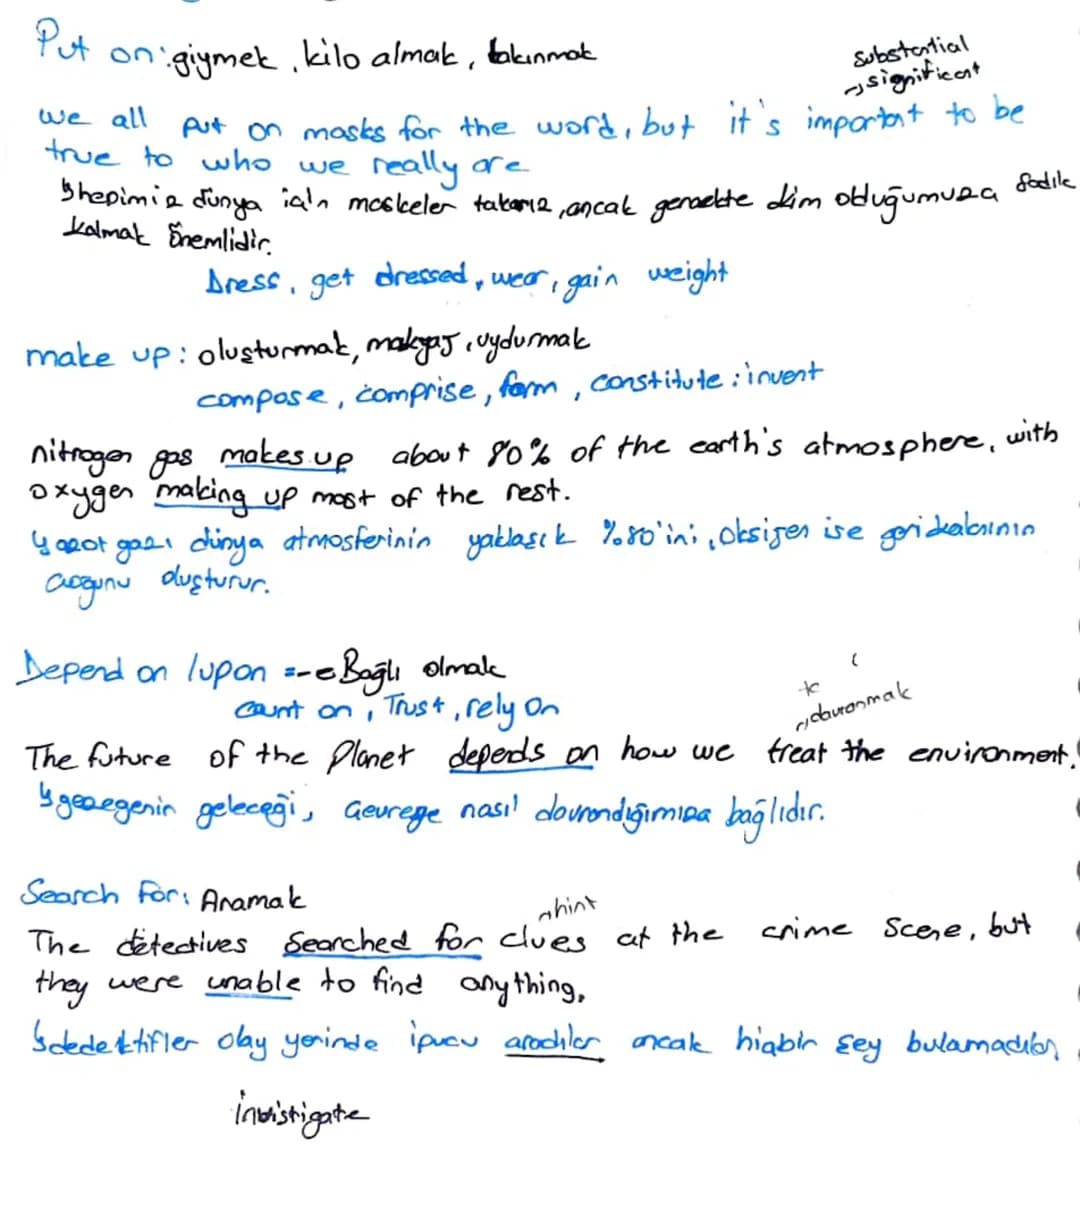 Put on: giymek, kilo almak, takınmak
substantial
significant
we all put on masks for the word, but it's important to be
true to who we really are
hepimiz dünya için maskeler takarız, ancak gerçekte kim olduğumuza sadık
kalmak önemlidir.
Dress, get dressed, wear, gain weight
make up: oluşturmak, makyaj, uydurmak
compose, comprise, form, constitute: invent
nitrogen gas makes up about 80% of the earth's atmosphere, with
oxygen making up most of the rest.
azot gazı dünya atmosferinin yaklaşık %80'ini, oksijen ise geri kalanının
çoğunu oluşturur.
Depend on /upon =-e Bağlı olmak
count on, Trust, rely on
davranmak
The future of the Planet depends on how we treat the environment.
gezegenin geleceği, çevreye nasıl davrandığımıza bağlıdır.
Search for: Aramak
hint
The detectives searched for clues at the crime scene, but
they were unable to find anything.
dedektifler olay yerinde ipucu aradılar ancak hiçbir şey bulamadılar
invistigate